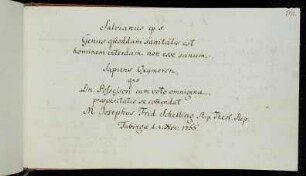 Salvianus ep. 5.
Genus quoddam sanitatis est
hominem interdum non esse sanum.
Sapiens
quo
Dn. Possessori cum voto omnigenae
prosperitatis se comendat
M. Josephus Frid. Schelling Rep.
Tubingae d. 2. Nov. 1766